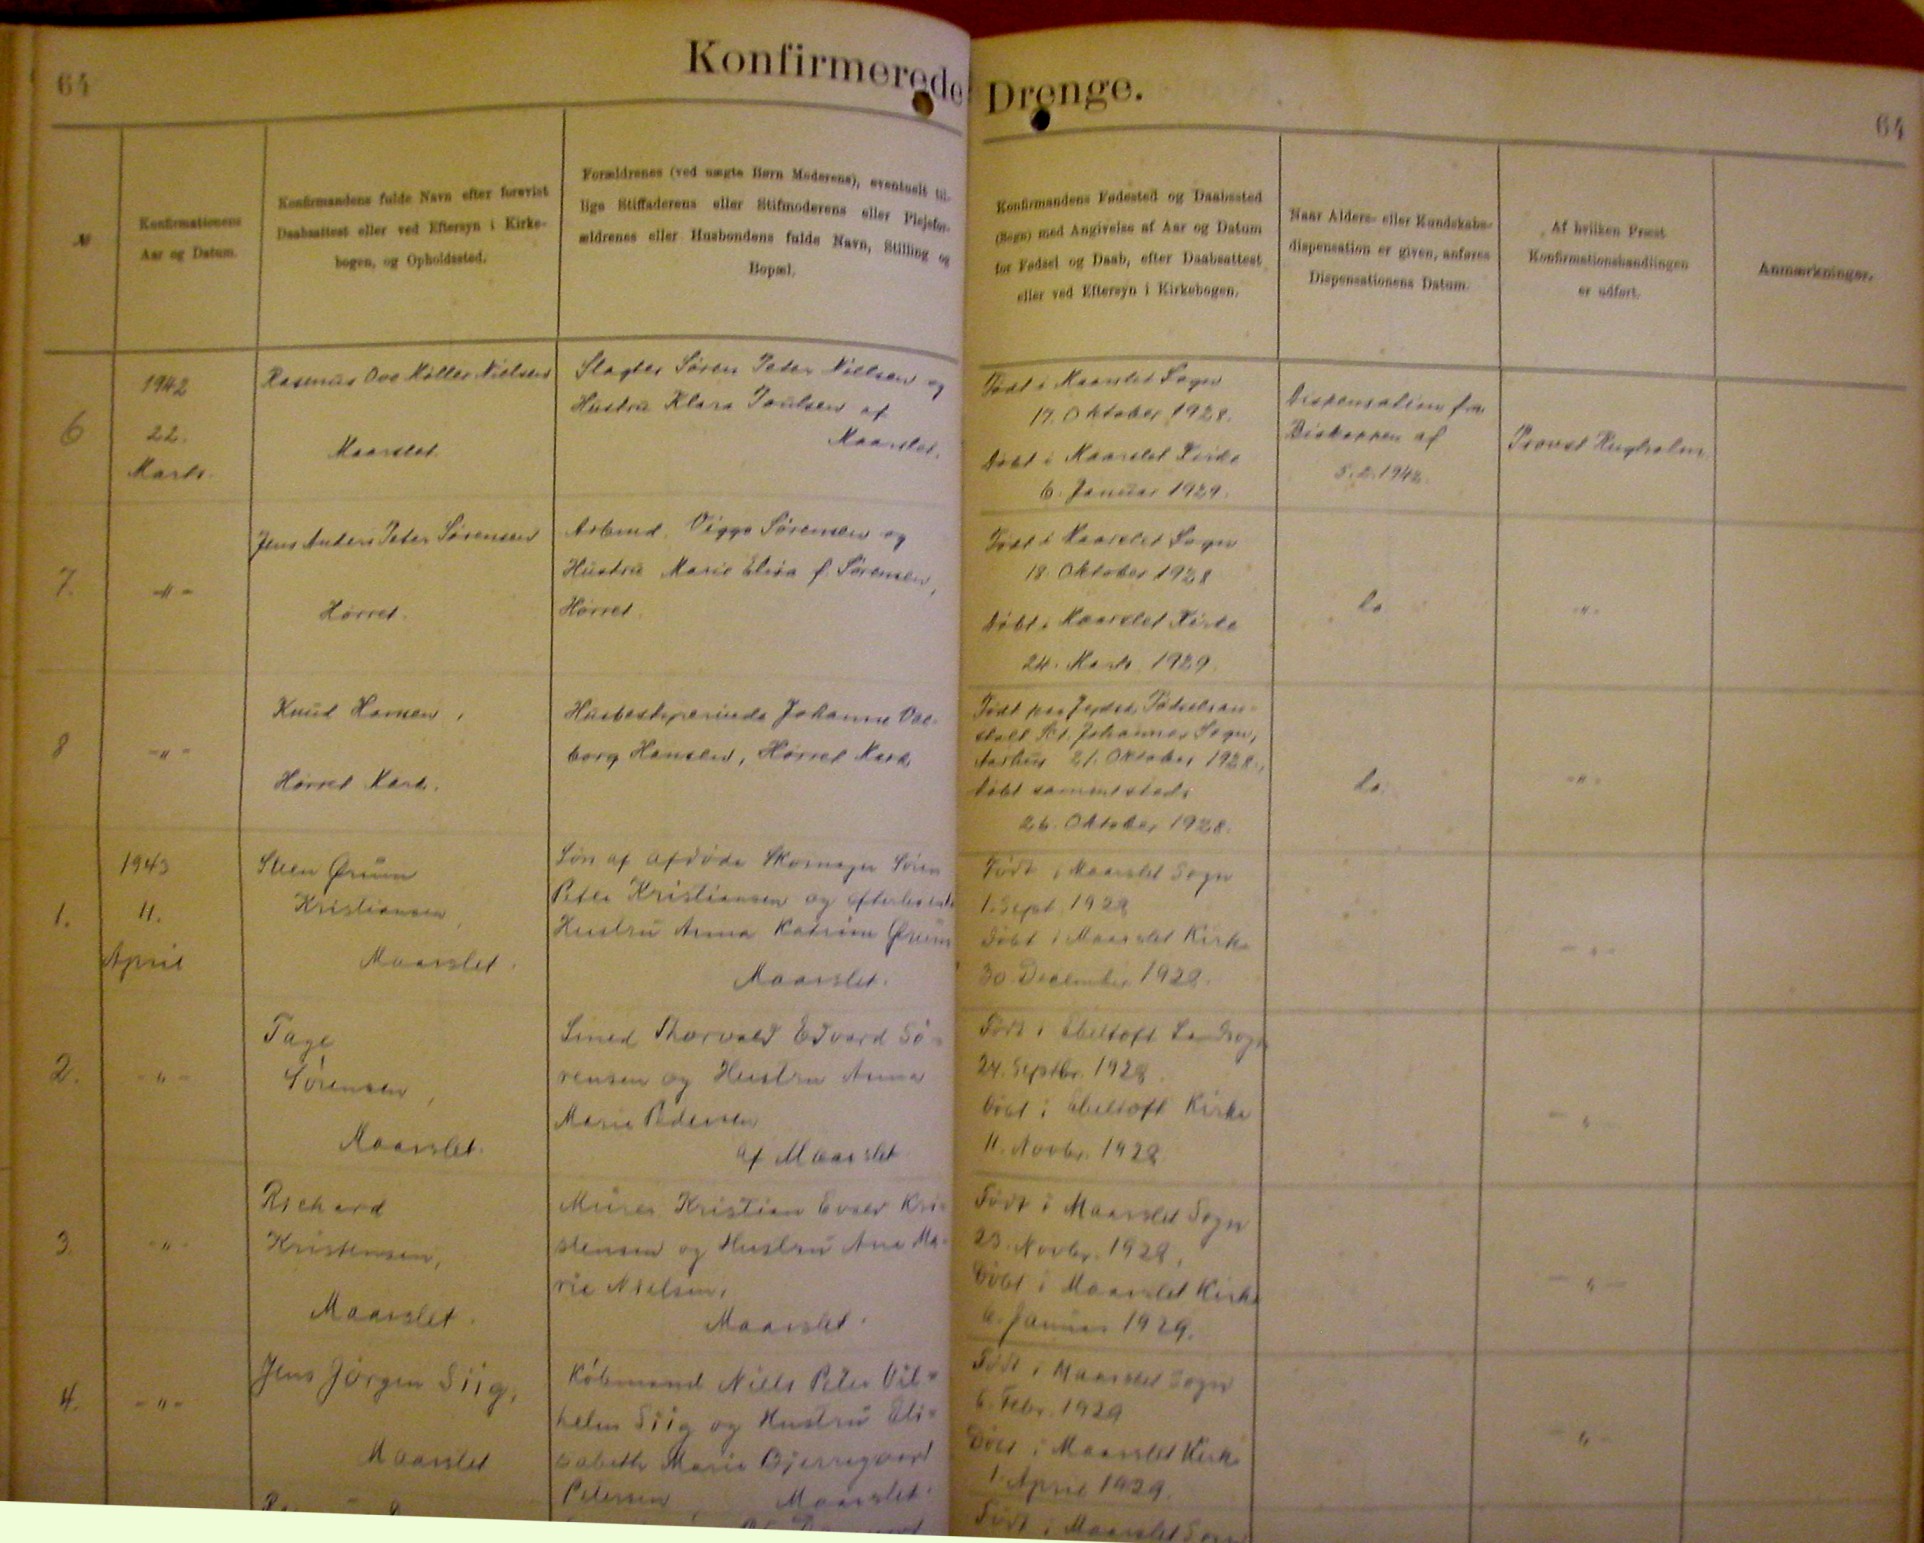 64
Konfirmerede Drenge.
64
№
Konfirmationens
Aar og Datum.
Konfirmandens fulde Navn efter forevist
Daabsattest eller ved Eftersyn i Kirke-
bogen, og Opholdssted.
Forældrenes (ved uægte Børn Moderens), eventuelt til-
lige Stiffaderens eller Stifmoderens eller Plejefor-
ældrenes eller Husbondens fulde Navn, Stilling og
Bopæl.
Konfirmandens Fødested og Daabssted
(Sogn) med Angivelse af Aar og Datum
for Fødsel og Daab, efter Daabsattest
eller ved Eftersyn i Kirkebogen.
Naar Alders- eller Kundskabs-
dispensation er given, anføres
Dispensationens Datum.
Af hvilken Præst
Konfirmationshandlingen
er udført.
Anmærkninger.
6
1942
22.
Marts.
Rasmus Ove Møller Nielsen
Maarslet.
Slagter Søren Peter Nielsen og
Hustru Klara Poulsen af
Maarslet.
Født i Maarslet Sogn
17. Oktober 1928.
Døbt i Maarslet Kirke
6. Januar 1929.
Dispensation fra
Biskoppen af
5.2.1942.
Provst
7.
-"-
Jens Anders Peter Sørensen
Hørret.
Arbmd. Viggo Sørensen og
Hustru Marie Elisa f. Sørensen,
Hørret.
Født i Maarslet Sogn
18. Oktober 1928
Døbt i Maarslet Kirke
24. Marts 1929.
Do
-"-
8
-"-
Knud Hansen,
Hørret Mark.
Husbestyrerinde Johanne Val-
borg Hansen, Hørret Mark
Født paa Jydsk Fødselsan-
stalt Sct. Johannes Sogn,
Aarhus 21. Oktober 1928.,
Døbt sammesteds
26. Oktober 1928.
Do.
-"-
1.
1943
11.
April
Steen Ørum
Kristiansen,
Maarslet.
Søn af afdøde Skomager Søren
Peter Kristiansen og efterlevende
Hustru Anna Katrine Ørum
Maarslet.
Født i Maarslet Sogn
1. Sept. 1928
Døbt i Maarslet Kirke
30. December 1928.
-"-
2.
-"-
Tage
Sørensen,
Maarslet.
Smed Thorvald Edvard Sø-
rensen og Hustru Anna
Marie Pedersen
af Maarslet
Født i Ebeltoft Landsogn
24. Septbr. 1928.
Døbt i Ebeltoft Kirke
11. Novbr. 1928
-"-
3.
-"-
Richard
Kristensen,
Maarslet.
Murer Kristian Kri-
stensen og Hustru Ane Ma-
rie Nielsen,
Maarslet.
Født i Maarslet Sogn
23. Novbr. 1928,
Døbt i Maarslet Kirke
6. Januar 1929.
-"-
4.
-"-
Jens Jørgen Siig,
Maarslet
Købmand Niels Peter Vil-
helm Siig og Hustru Eli-
sabeth Marie Bjerregaard
Petersen, Maarslet.
Født i Maarslet Sogn
6. Febr. 1929
Døbt i Maarslet Kirke
1. April 1929.
-"-
Født i Maarslet Sogn